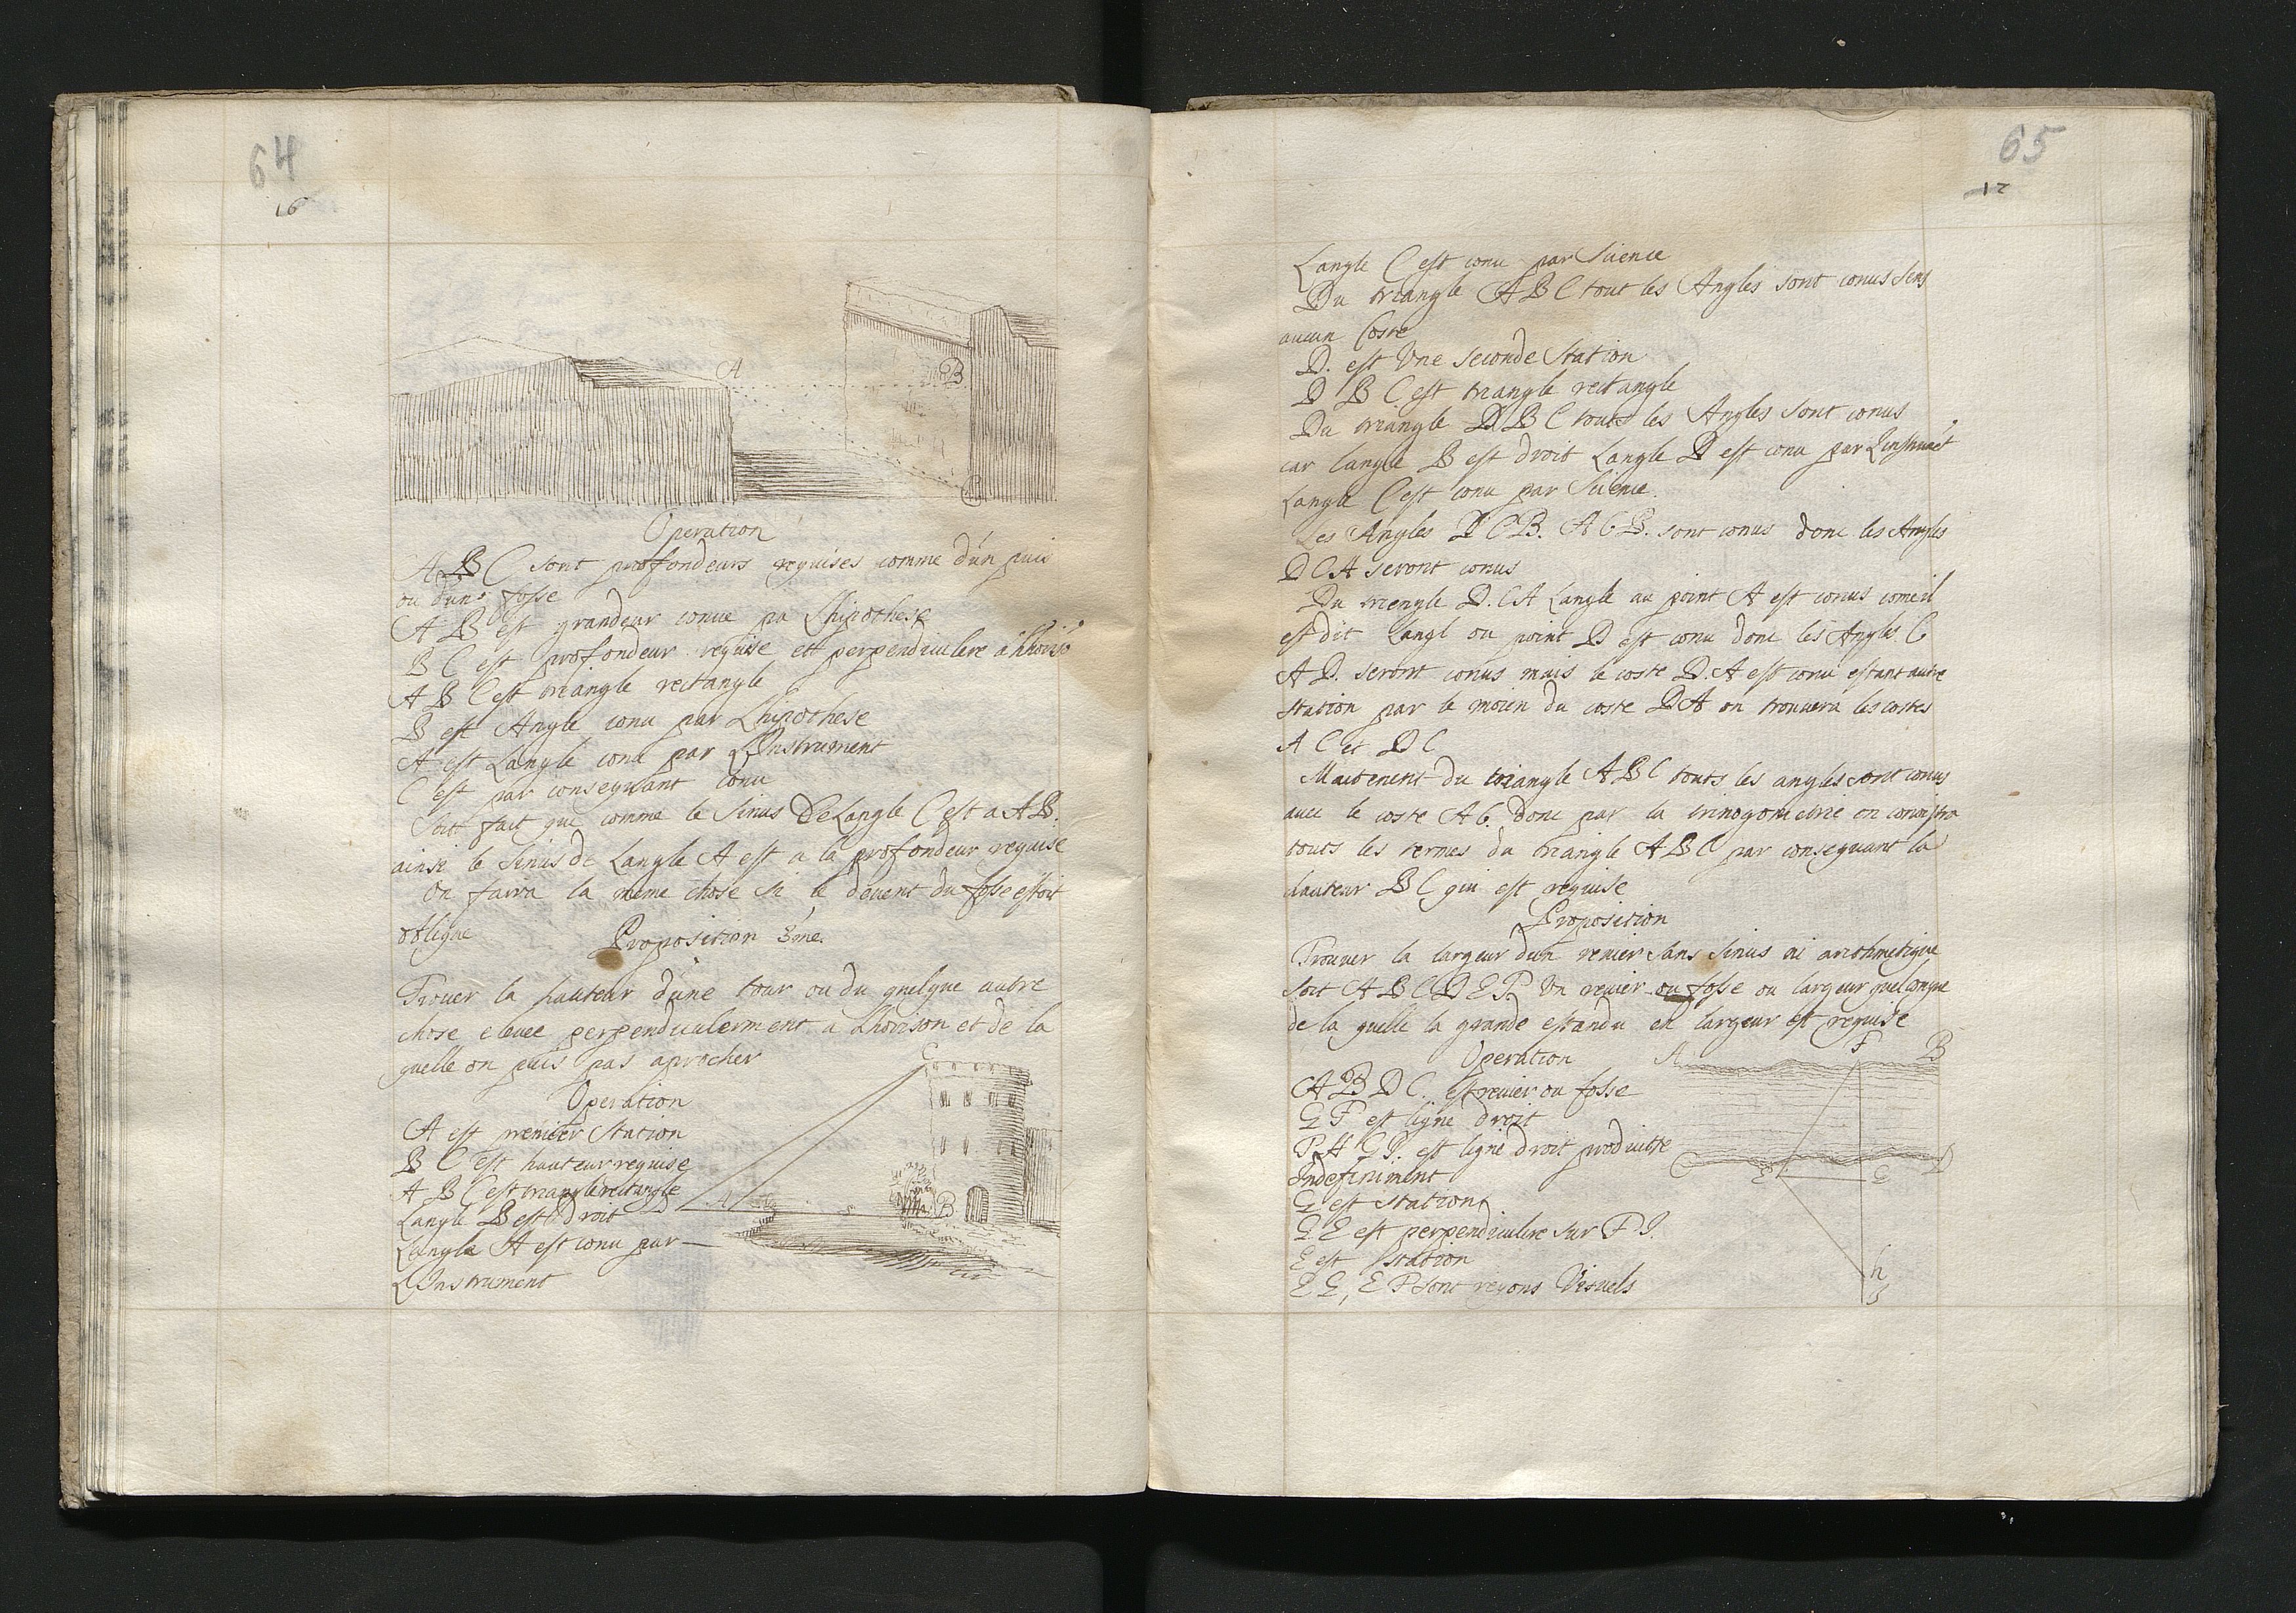 64
16
A
B
C
Operation
A B C sont profondeurs requises comme d'un puis
ou d'une fosse
A B est grandeur conue pa Lhipothese
B C est profondeur requise ett perpendiculere a lhoriso
A B C est triangle rectangle
B est Angle conu par Lhipothese
A est Langle conu par LInstrument
C est par consequant conu
Soit fait que comme le Sinus De Langle C est a A B.
ainsi le Sinus de Langle A est a la profondeur requise
On faira la meme chose si le devent du fosse estoit
oblique
Proposition 3me.
Trouer la hauteur d'une tour ou du quelque autre
chose elevee perpendiculerment a Lhorison et de la
quelle on puis pas aprocher
Operation
A est premier Station
B C est hauteur requise
A B C est triangle rectangle
Langle B est droit
Langle A est conu par
LInstrument
C
A
B
65
17
Langle C est conu par Sience
Du triangle A B C tout les Angles sont conus sens
aucun Coste
D. est Une seconde Station
D B C est triangle rectangle
Du triangle D B C touts les Angles sont conus
car langle B est droit Langle D est conu par Linstrumêt
Langle C est conu par Sience.
Les Angles D C B. A C B. sont conus donc les Angles
D C A seront conus
Du triengle D. C A Langle au point A est conus come il
est dit Langl ou point D est conu donc les Angles C
A D. seront conus mais le coste D. A est conu estant autre
station par le moien du coste D A on trouvera les costes
A C et D C
Maitenent du triangle A B C touts les angles sont conus
avec le coste A C. donc par la trinogometrie on conoistra
touts les termes du triangle A B C par consequant la
hauteur B C qui est requise
Proposition
Trouver la largeur d'un revier sans Sinus ni arithmetique
Soit A B C D E F. Un revier ou fosse ou largeur quelconque
de la quelle la grande estandu en largeur est requise
Operation
A B D C. est revier ou fosse
G F est ligne droit
F. H G I. est ligne droit produitte
Indefiniment
G est Station
G E est perpendiculere sur F I.
E est Station
E G, E F sont reyons Visuels
A
F
B
C
E
G
D
h